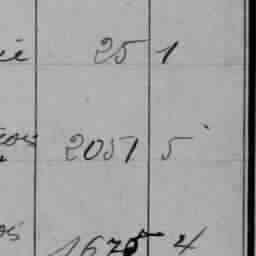 25 1
2051 5
1675 4